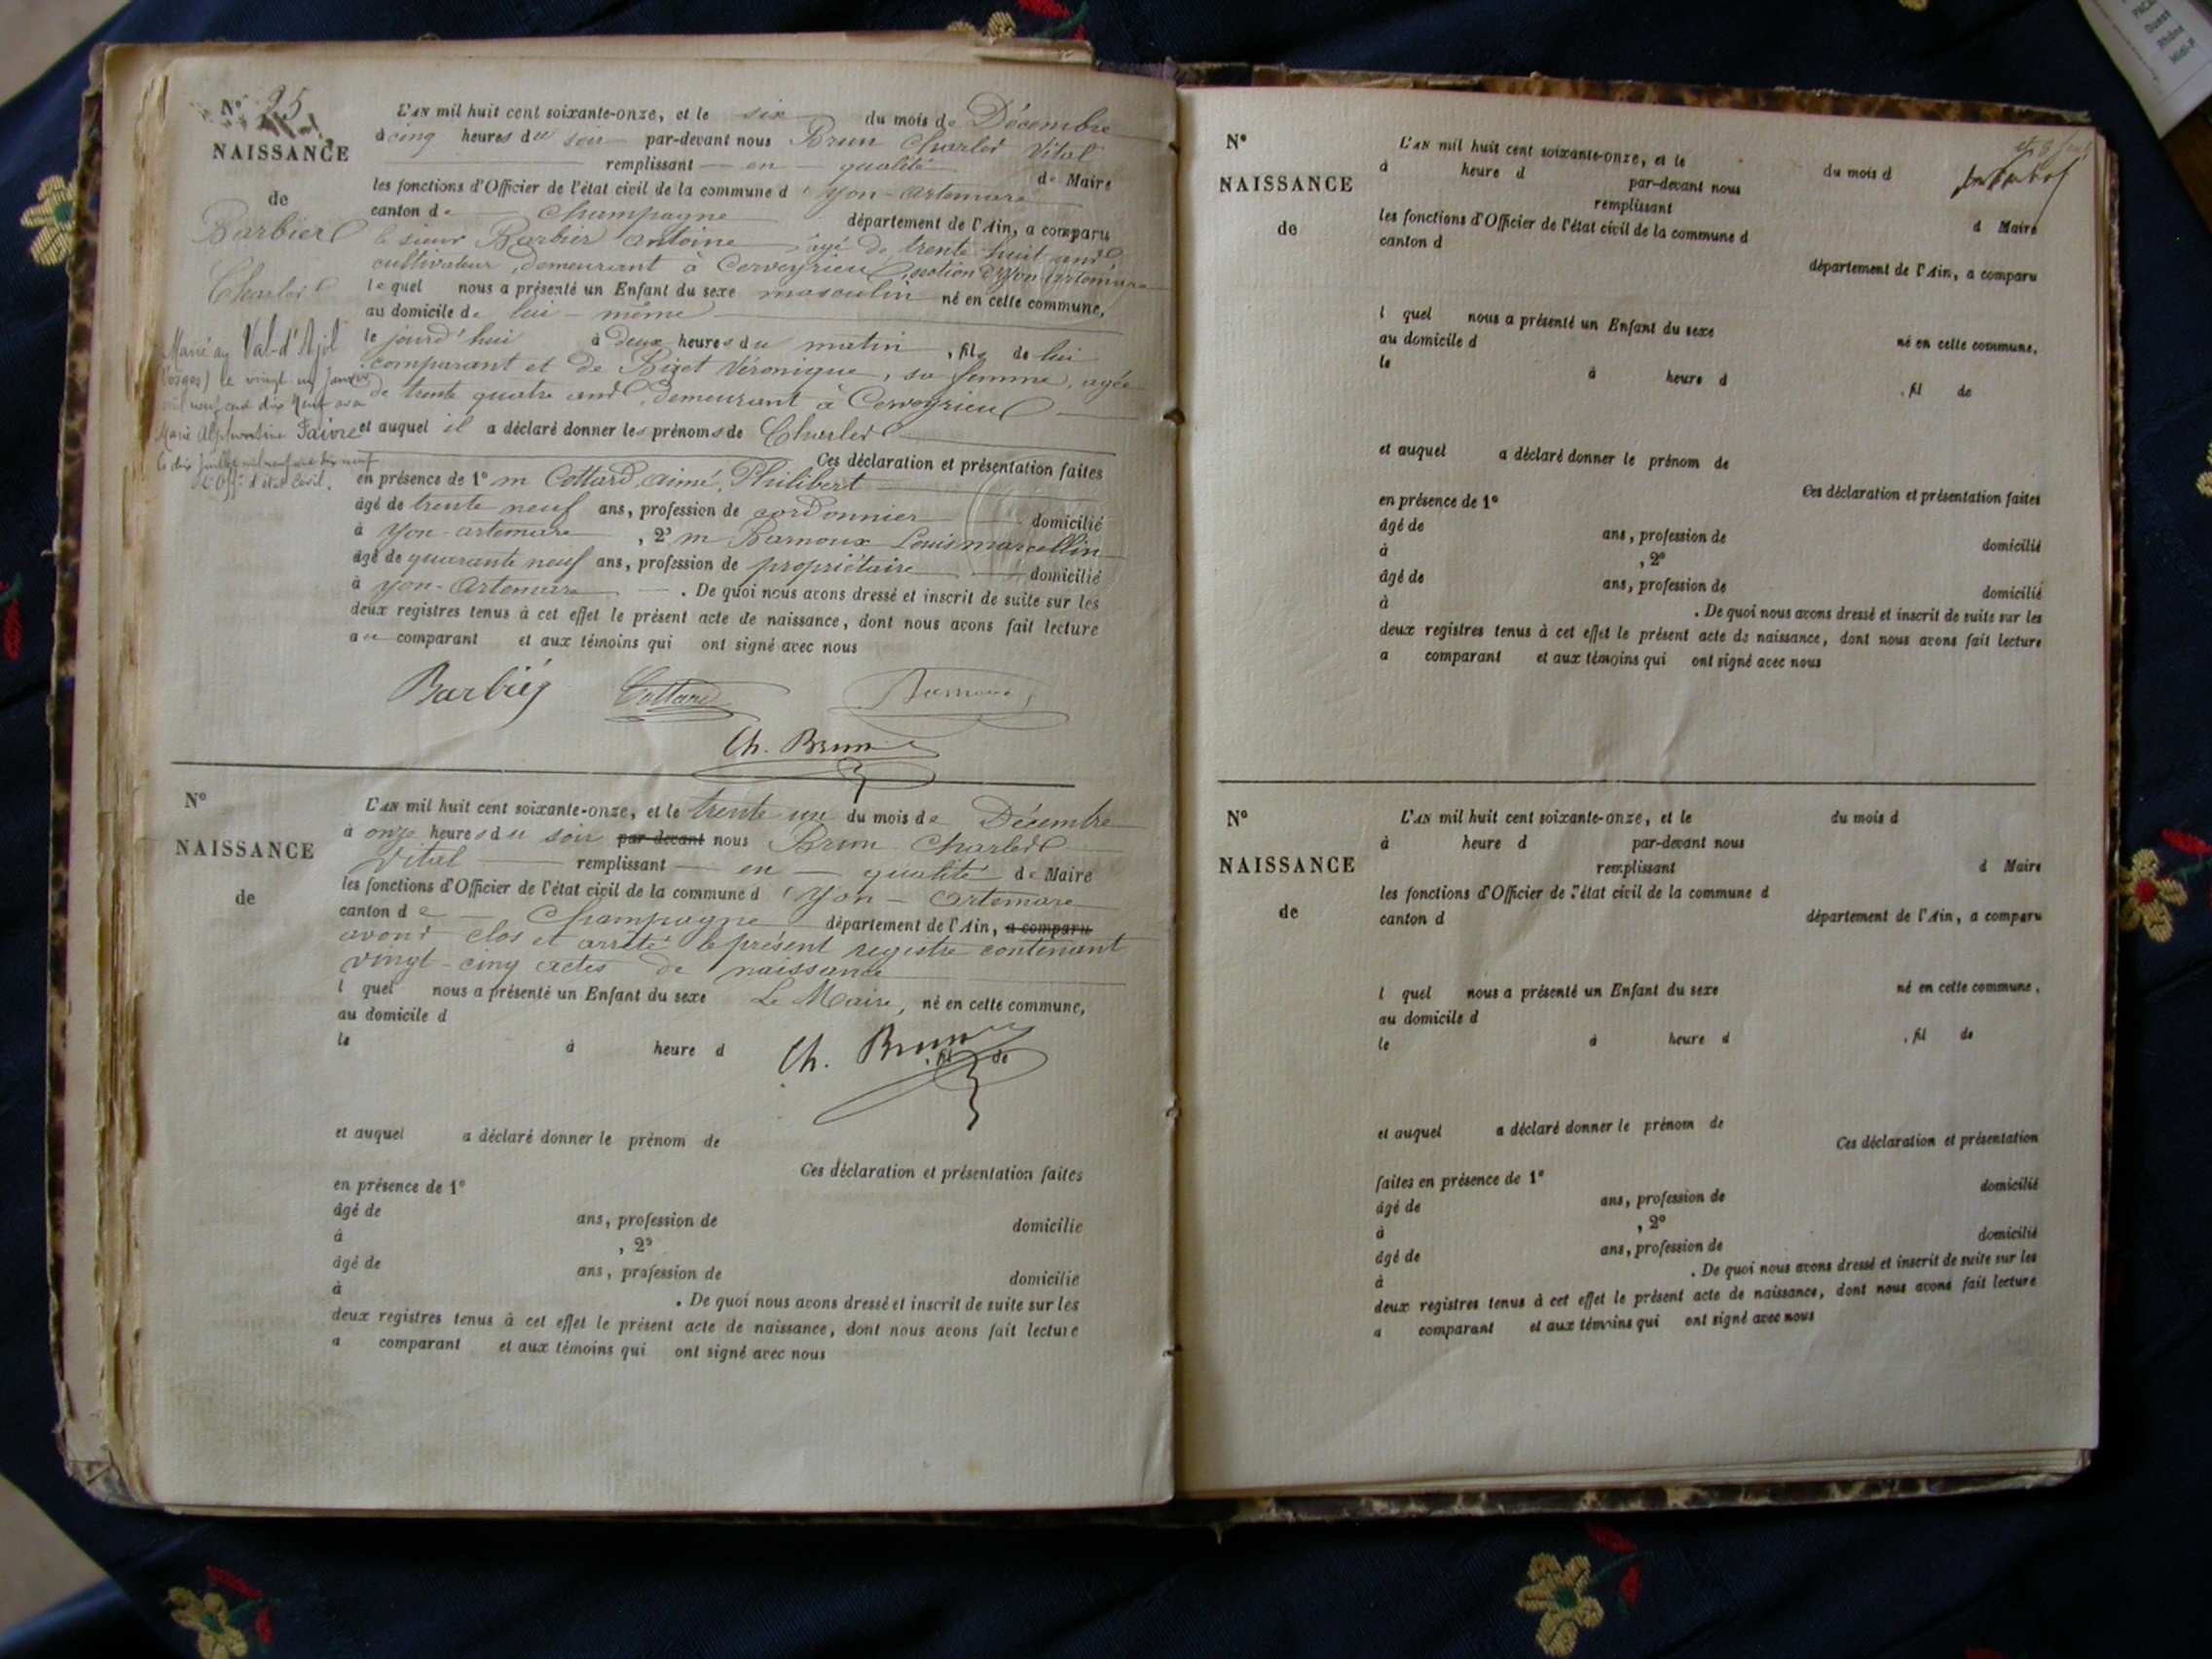 N° 25
NAISSANCE
de
Barbier
Charles
Marié au Val-d'Ajol
(Vosges) le vingt un janvier
mil neuf cent dix neuf avec
Marie Alphonsine Faivre
le dix juillet mil neuf cent dix neuf
L'Off. d'état Civil.
L'AN mil huit cent soixante-onze, et le six du mois de Décembre
à cinq heures du soir par-devant nous Brun Charles Vital
remplissant en qualité de Maire
les fonctions d'Officier de l'état civil de la commune d'Yon-Artemare
canton de Champagne département de l'Ain, a comparu
le sieur Barbier Antoine âgé de trente huit ans
cultivateur, demeurant à Cerveyrieu, section d'Yon Artemare
lequel nous a présenté un Enfant du sexe masculin né en cette commune,
au domicile de lui-même
le jourd'hui à deux heures du matin, fils de lui
comparant et de Bizet Véronique, sa femme, agée
de trente quatre ans demeurant à Cerveyrieu
et auquel il a déclaré donner les prénoms de Charles
Ces déclaration et présentation faites
en présence de 1° m Cottard, Aimé, Philibert
âgé de trente neuf ans, profession de cordonnier domicilié
à Yon-artemare, 2° m Barnoux Louis marcellin
âgé de quarante neuf ans, profession de propriétaire domicilié
à Yon-Artemare. De quoi nous avons dressé et inscrit de suite sur les
deux registres tenus à cet effet le présent acte de naissance, dont nous avons fait lecture
au comparant et aux témoins qui ont signé avec nous
Barbier Cottard Barnoux
Ch. Brun
N°
NAISSANCE
de
L'AN mil huit cent soixante-onze, et le trente un du mois de Décembre
à onze heures du soir par-devant nous Brun Charles
Vital remplissant en qualité de Maire
les fonctions d'Officier de l'état civil de la commune d'Yon-Artemare
canton de Champagne département de l'Ain, a comparu
avons clos et arrêté le présent registre contenant
vingt-cinq actes de naissance
l quel nous a présenté un Enfant du sexe Le Maire, né en cette commune,
au domicile d
le à heure d Ch. Brun, fil de
et auquel a déclaré donner le prénom de
Ces déclaration et présentation faites
en présence de 1°
âgé de ans, profession de domicilié
à , 2°
âgé de ans, profession de domicilié
à . De quoi nous avons dressé et inscrit de suite sur les
deux registres tenus à cet effet le présent acte de naissance, dont nous avons fait lecture
a comparant et aux témoins qui ont signé avec nous
N°
NAISSANCE
de
L'AN mil huit cent soixante-onze, et le du mois d
à heure d par-devant nous
remplissant d Maire
les fonctions d'Officier de l'état civil de la commune d
canton d département de l'Ain, a comparu
l quel nous a présenté un Enfant du sexe né en cette commune,
au domicile d
le à heure d , fil de
et auquel a déclaré donner le prénom de
Ces déclaration et présentation faites
en présence de 1°
âgé de ans, profession de domicilié
à , 2°
âgé de ans, profession de domicilié
à . De quoi nous avons dressé et inscrit de suite sur les
deux registres tenus à cet effet le présent acte de naissance, dont nous avons fait lecture
a comparant et aux témoins qui ont signé avec nous
N°
NAISSANCE
de
L'AN mil huit cent soixante-onze, et le du mois d
à heure d par-devant nous
remplissant d Maire
les fonctions d'Officier de l'état civil de la commune d
canton d département de l'Ain, a comparu
l quel nous a présenté un Enfant du sexe né en cette commune,
au domicile d
le à heure d , fil de
et auquel a déclaré donner le prénom de
Ces déclaration et présentation
faites en présence de 1° domicilié
âgé de ans, profession de
à , 2° domicilié
âgé de ans, profession de
à . De quoi nous avons dressé et inscrit de suite sur les
deux registres tenus à cet effet le présent acte de naissance, dont nous avons fait lecture
a comparant et aux témoins qui ont signé avec nous
Ouest
Rhône
Midi-P